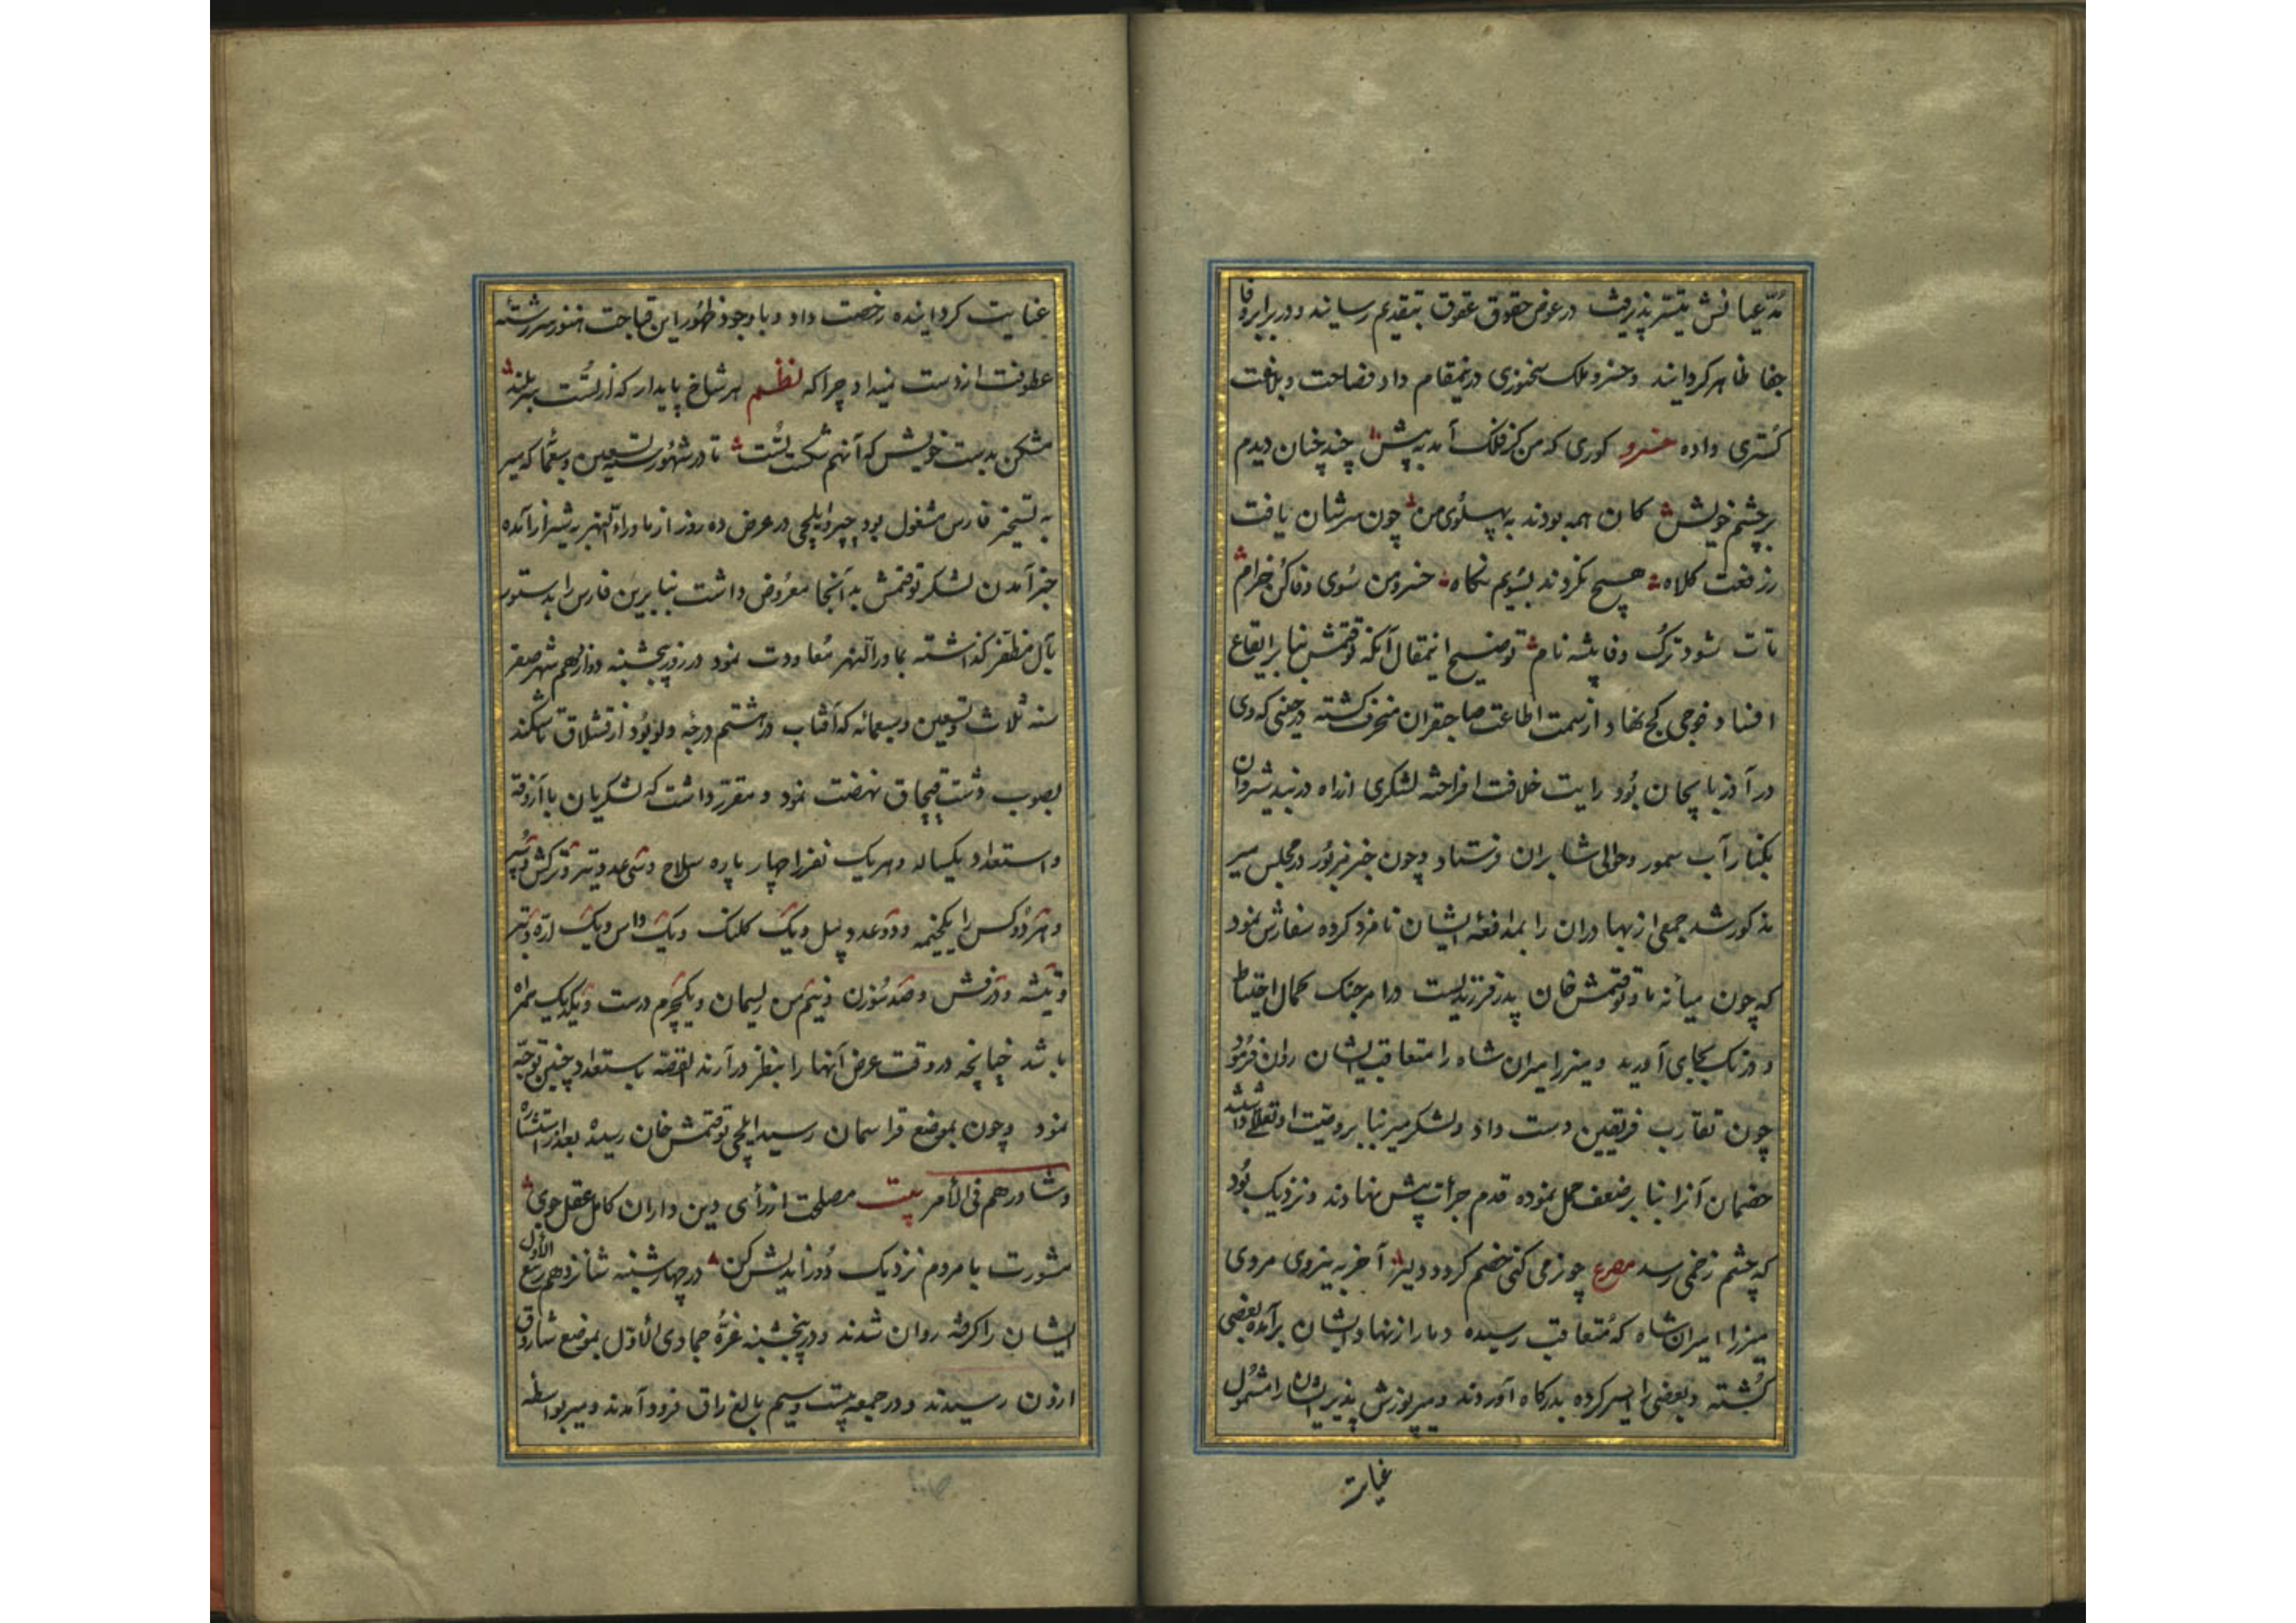 مدعیانش تیسیر پذیرفت در عوض حقوق عقوق بتقدیم رسانید و در برابر وفا
جفا ظاهر کردانید و خسرو ملک سخنوری درینمقام داد فصاحت و بلاغت
کستری داده خسرو کوری که من کز فلک آمد به پیش چند چنان دیدم
بر چشم خویش کان همه بودند به پهلوی من چون سرشان یافت
ز رفعت کلاه هیچ نکردند بسویم نکاه خسرو من سوی وفا کن خرام
تات شود ترک وفا پیشه نام توضیح اینمقال آنکه توقتمش بنا بر ایقاع
افساد فوجی کج نهاد از سمت اطاعت صاحبقران منحرف کشته در حینی که وی
در آذربایجان بود رایت خلافت افراخته لشکری از راه دربند شیروان
بکنار آب سمور و حوالی شابران فرستاد و چون خبر مزبور در مجلس میر
مذکور شد جمعی از بهادران را بمدافعه ایشان نامزد کرده سفارش نمود
که چون میانه ما و توقتمش خان پدر فرزندیست در امر جنک کمال احتیاط
و درنک بجای آورید و میرزا میران شاه را متعاقب ایشان روان فرمود
چون تقارب فریقین دست داد و لشکر میر بنا بر وصیت او تعلل داشتند
خصمان آنرا بنا بر ضعف حمل نموده قدم جرأت پیش نهادند و نزدیک بود
که چشم زخمی رسد مصرع چو نرمی کنی خصم کردد دلیر آخر به نیروی مردی
میرزا امیران شاه که متعاقب رسیده دمار از نهاد ایشان برآمده بعضی
کشته و بعضی را اسیر کرده بدرکاه آوردند و میر پوزش پذیر ایشان را مشمول
عنایت
عنایت کردانیده رخصت داد و با وجود ظهور این قباحت هنوز سررشته
عطوفت از دست نمیداد چرا که نظم هر شاخ پایدار که از تست سربلند
مشکن بدست خویش که آنهم شکست تست تا در شهور سنه تسعین و سبعمائه که میر
به تسخیر فارس مشغول بود چپر و ایلچی در عرض ده روز از ماوراء النهر به شیراز آمده
خبر آمدن لشکر توقتمش به آنجا معروض داشت بنابرین فارس را بدستور
بآل مظفر کذاشته بماورالنهر معاودت نمود در روز پنجشنبه دوازدهم شهر صفر
سنه ثلاث و تسعین و سبعمائه که آفتاب در هشتم درجه دلو بود از قشلاق تاشکند
بصوب دشت قپچاق نهضت نمود و مقرر داشت که لشکریان با آزوقه
و استعداد یکساله و هر یک نفر را چهار پاره سلاح و سی عدد تیر و ترکش و سپر
و هر دو کس را یکخیمه و دو عدد بیل و یک کلنک و یک داس و یک اره و تبر
و تیشه و درفش و صد سوزن و نیم من ریسمان و یکچرم درست و یکدیک همراه
باشد چنانچه در وقت عرض آنها را بنظر درآرند القصه باستعداد چنین توجه
نمود و چون بموضع قراسمان رسید ایلچی توقتمش خان رسیده بعد از استشاره
و شاورهم فی الأمر بیت مصلحت از رأی دین داران کامل عقل جوی
مشورت با مردم نزدیک دوراندیش کن در چهارشنبه شانزدهم ربیع الأول
ایشان را کرفته روان شدند و در پنجشنبه غره جمادی الاول بموضع ساروق
ازون رسیدند و در جمعه بیست و سیم بالغ زاق فرود آمدند و میر بواسطه